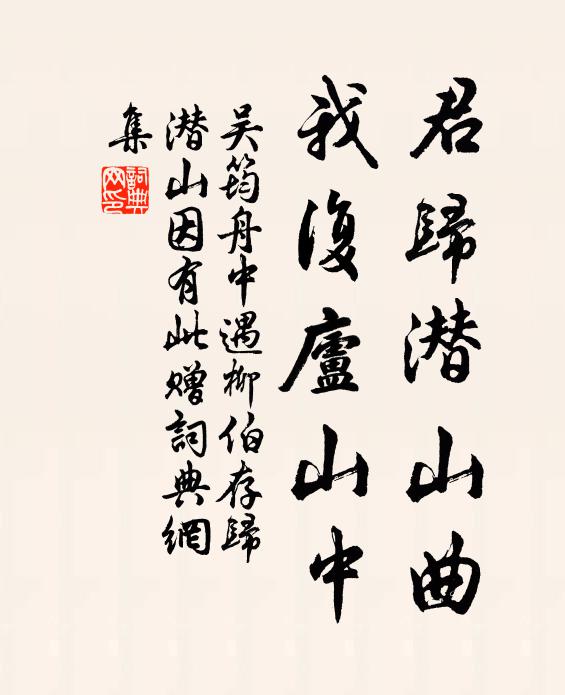 君歸潜山曲
我復廬山中
吴筠舟中遇柳伯存歸
潜山因有此贈詞典網
集
詞典
网印